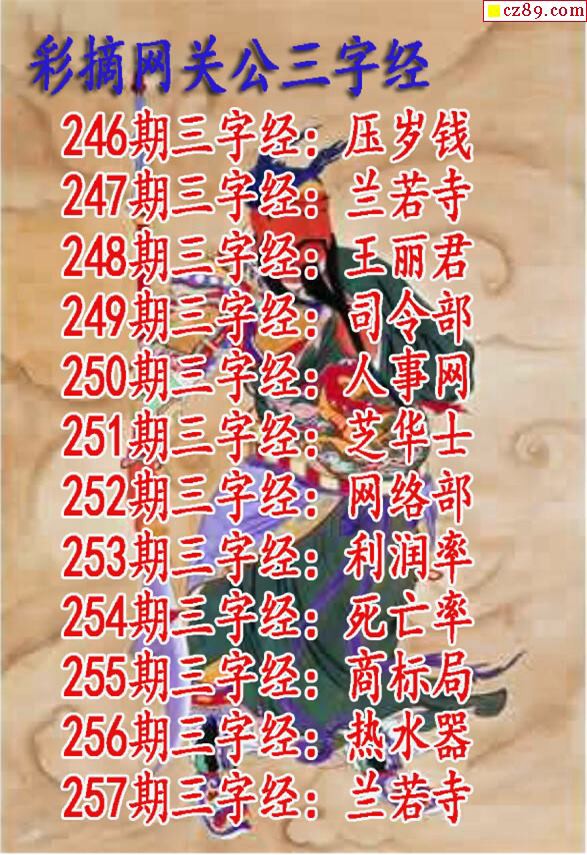 cz89.com
彩摘网关公三字经
246期三字经：压岁钱
247期三字经：兰若寺
248期三字经：王丽君
249期三字经：司令部
250期三字经：人事网
251期三字经：芝华士
252期三字经：网络部
253期三字经：利润率
254期三字经：死亡率
255期三字经：商标局
256期三字经：热水器
257期三字经：兰若寺